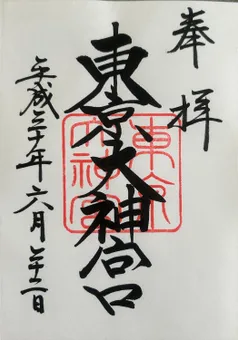 奉拝
東京大神宮
平成三十年六月二十二日
東京大神宮